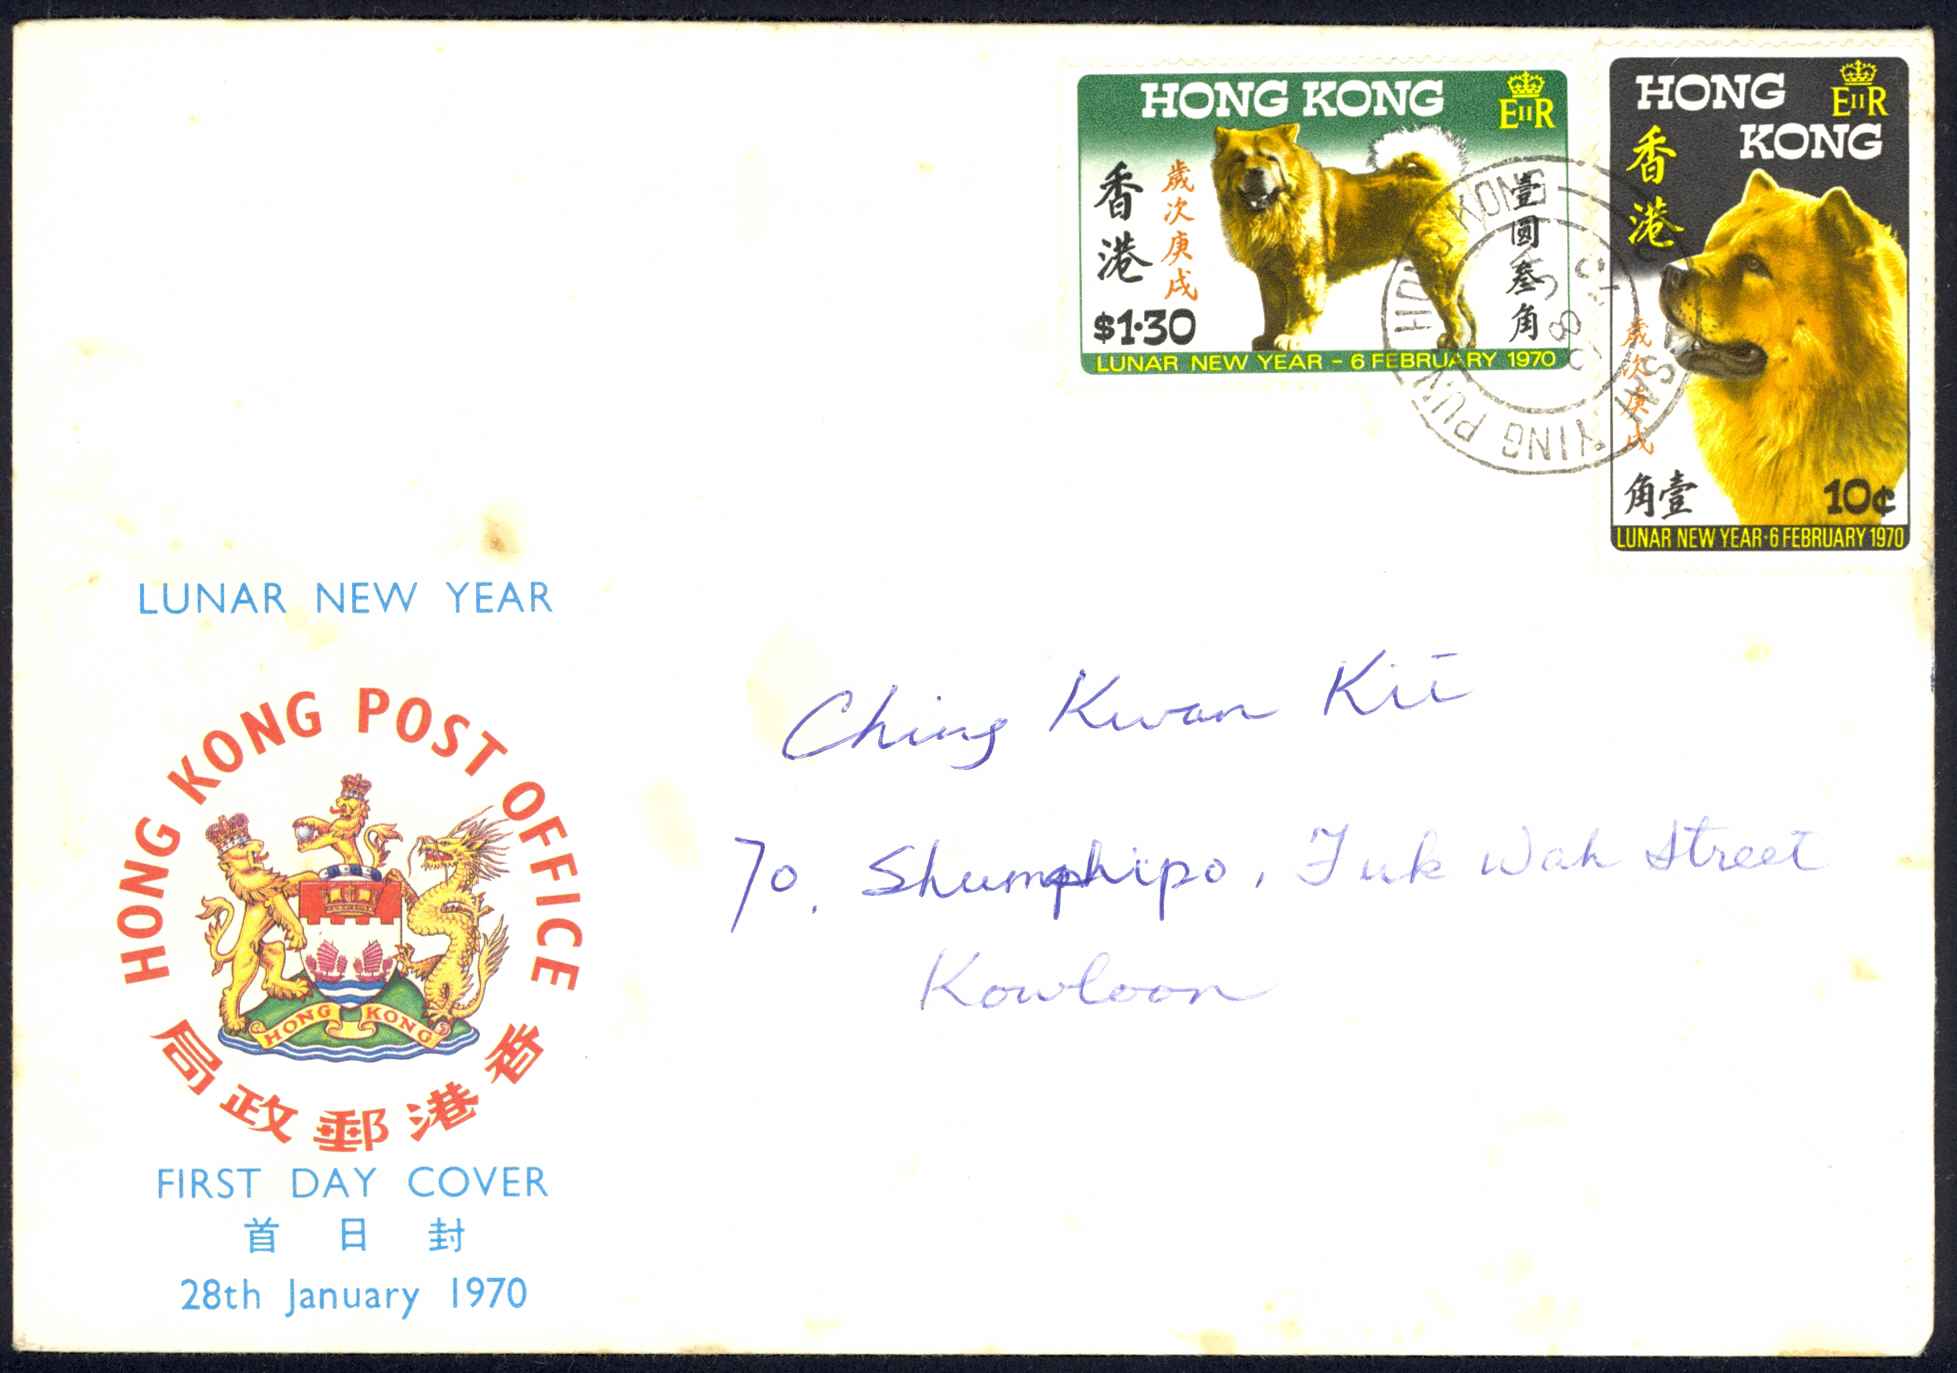 HONG KONG
EIIR
香港
歲次庚戌
壹圓叁角
$1·30
LUNAR NEW YEAR - 6 FEBRUARY 1970
HONG KONG
EIIR
香港
歲次庚戌
角壹
10¢
LUNAR NEW YEAR·6 FEBRUARY 1970
YING PUN
HONG KONG
LUNAR NEW YEAR
HONG KONG POST OFFICE
HONG KONG
局政郵港香
FIRST DAY COVER
首日封
28th January 1970
Ching Kwan Kit
70, Shumphipo, Fuk Wah Street
Kowloon